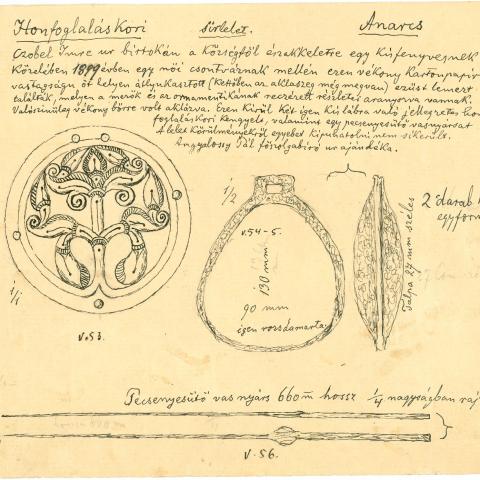 Honfoglaláskori sirlelet. Anarcs
Czóbel Imre ur birtokán a községtől északkeletre egy kis fenyvesnek
közelében 1899 évben egy női csontváznak mellén ezen vékony kartonpapir
vastagságu öt helyen átlyukasztott (kettőben az aklaszeg még megvan) ezüst lemezt
találták, melyen a mezők és az ornamentikának recézett részletei aranyozva vannak.
Valószinüleg vékony bőrre volt aklázva. Ezen kivül két igen kis lábra való jellegzetes hon
foglaláskori kengyelt, valamint egy pecsenyesütő vasnyársat
A lelet körülményeiről egyebet kipuhatolni nem sikerült.
Angyalossy Pál főszolgabiró ur ajándéka.
1/1
V.53.
1/2
V.54-5.
130 mm
90 mm
igen rozsdamarta
Talpa 27 mm széles
2 darab
egyform
Pecsenyesütő vas nyárs 660 m̄ hossz 1/4 nagyságban raj
V.56.